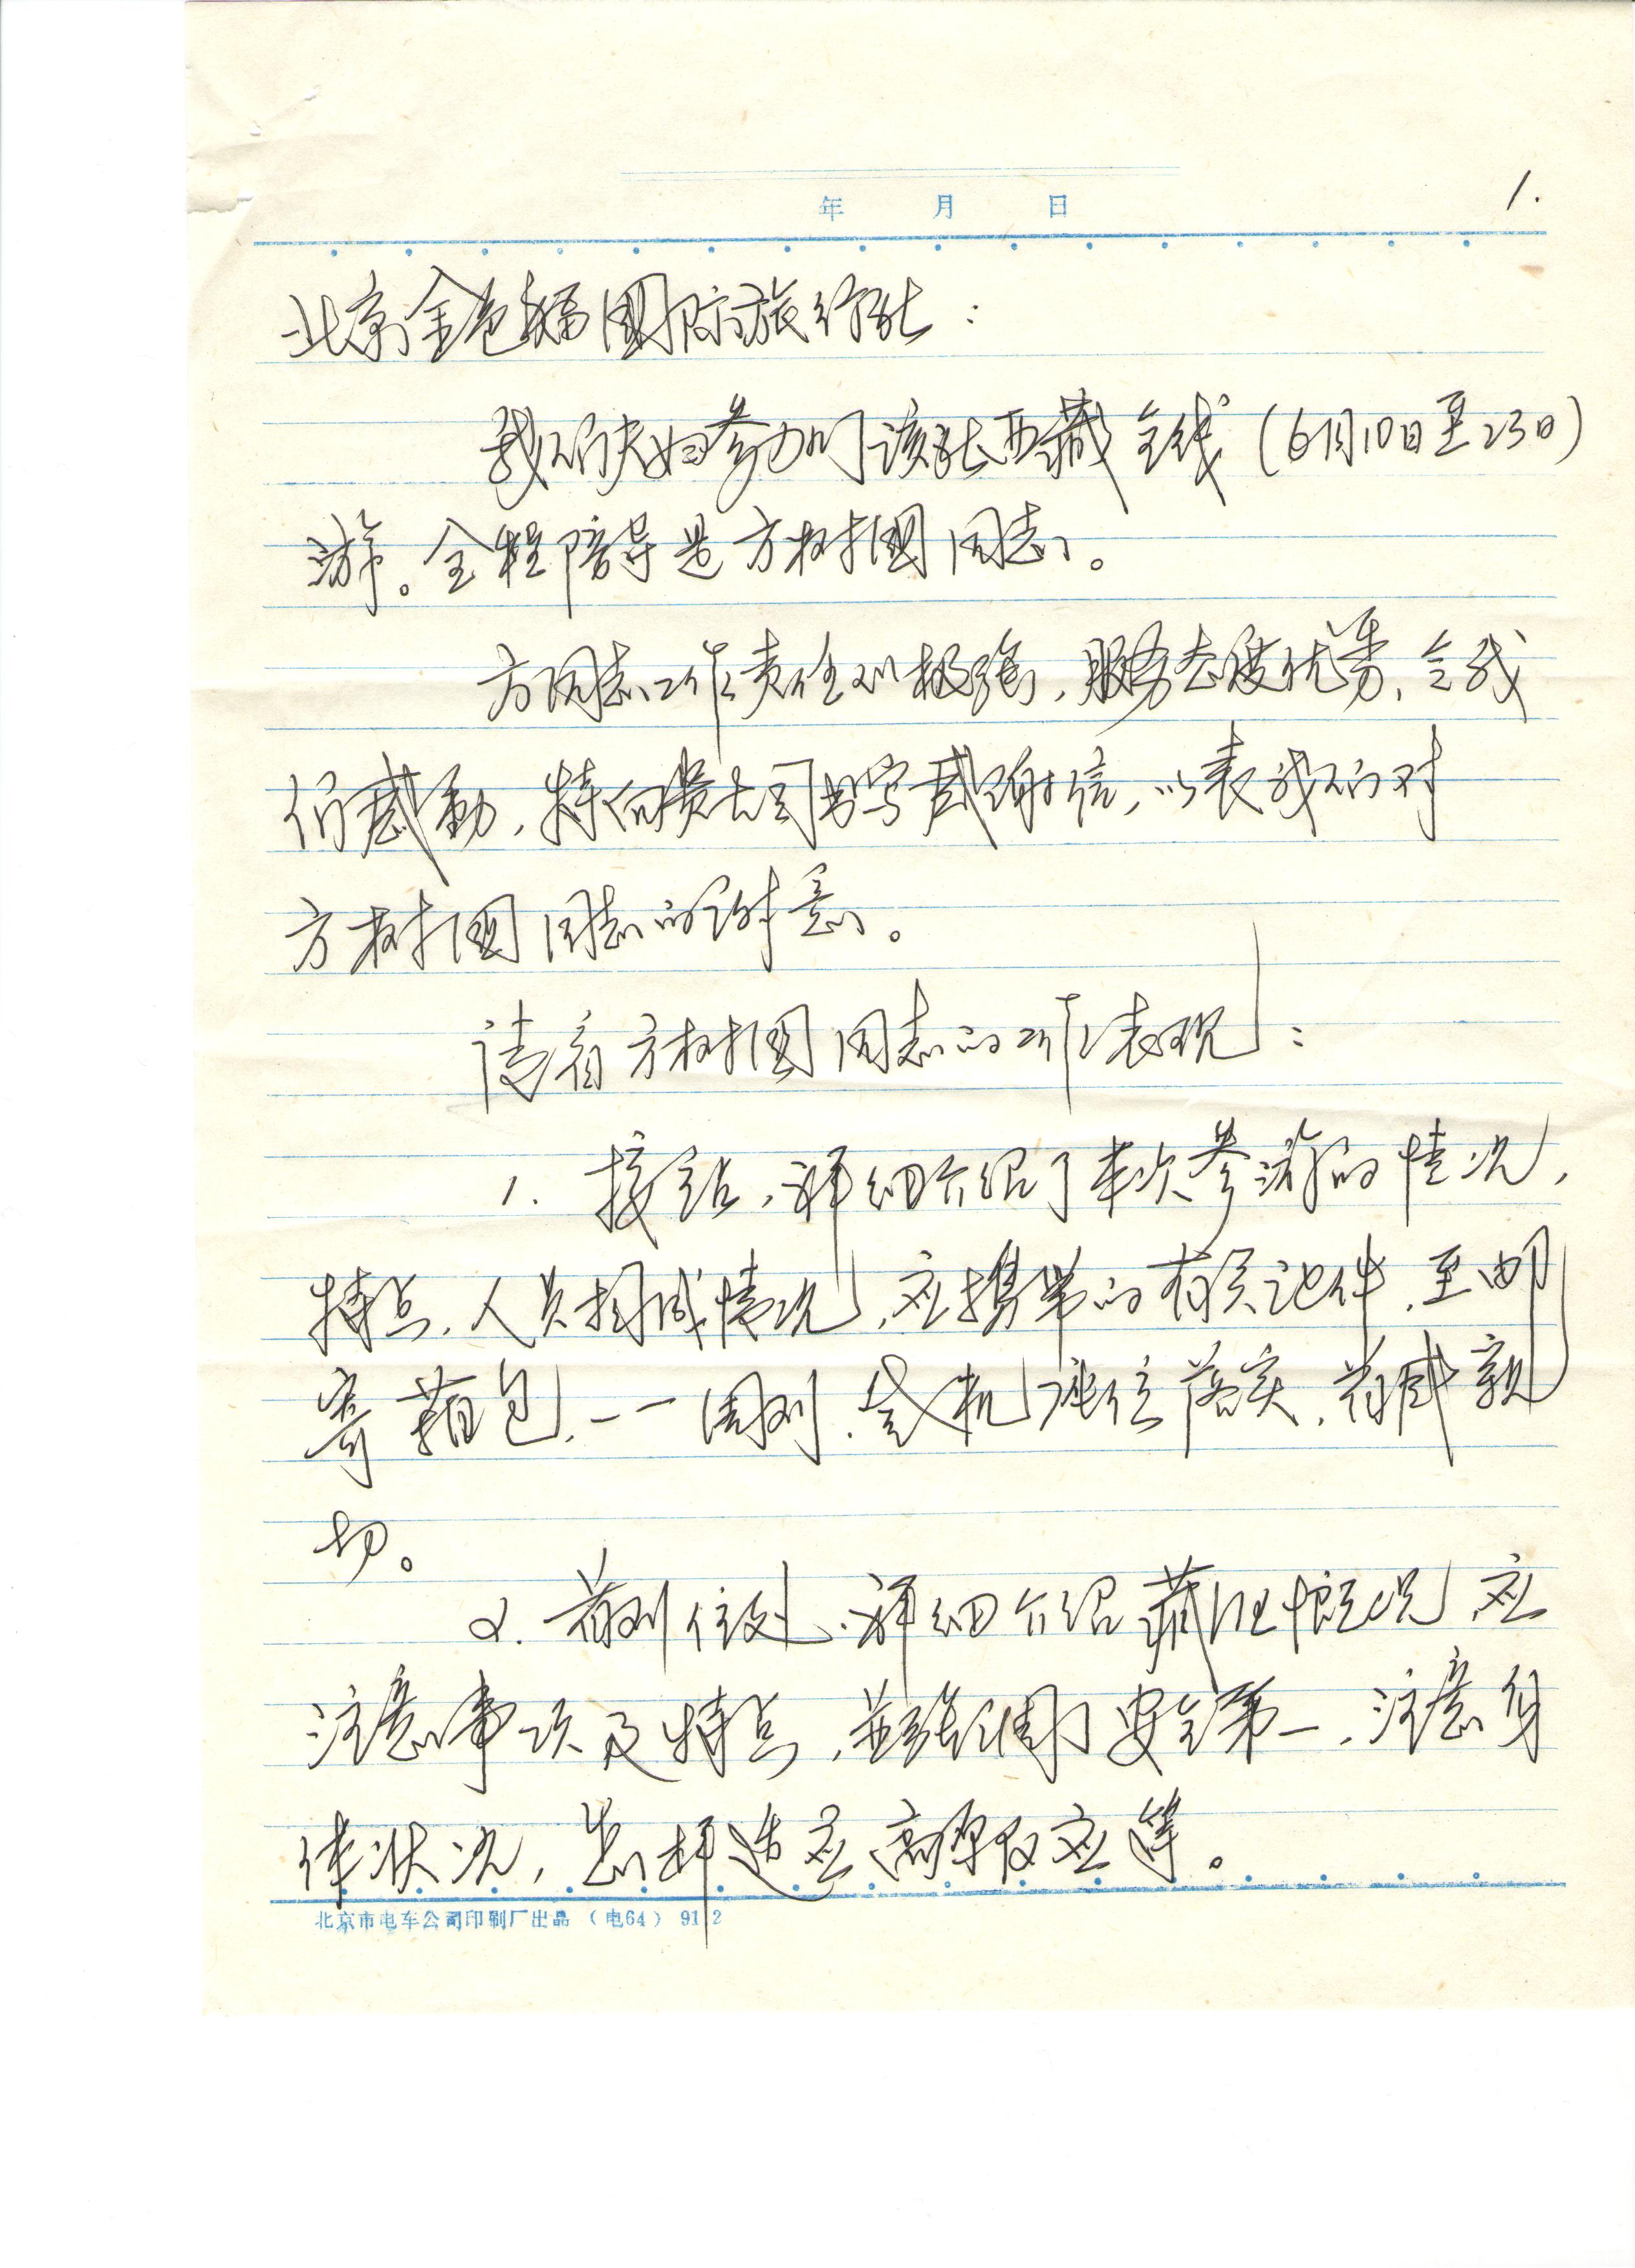 年 月 日
1.
北京金色辐国际旅行社：
我们夫妇参加了该社西藏全线（6月10日至23日）
游。全程陪导是方树国同志。
方同志工作责任心极强，服务态度优秀，令我
们感动，特向贵公司书写感谢信，以表我们对
方树国同志的谢意。
请看方树国同志的工作表现：
1. 接站，详细介绍了本次参游的情况，
特点，人员组成情况，应携带的有关证件，至邮
寄背包，一一周到，登机座位落实，备感亲
切。
2. 每到住处，详细介绍藏区概况，应
注意事项及特点，并强调安全第一，注意身
体状况，怎样适应高原反应等。
北京市电车公司印刷厂出品（电64）91.2